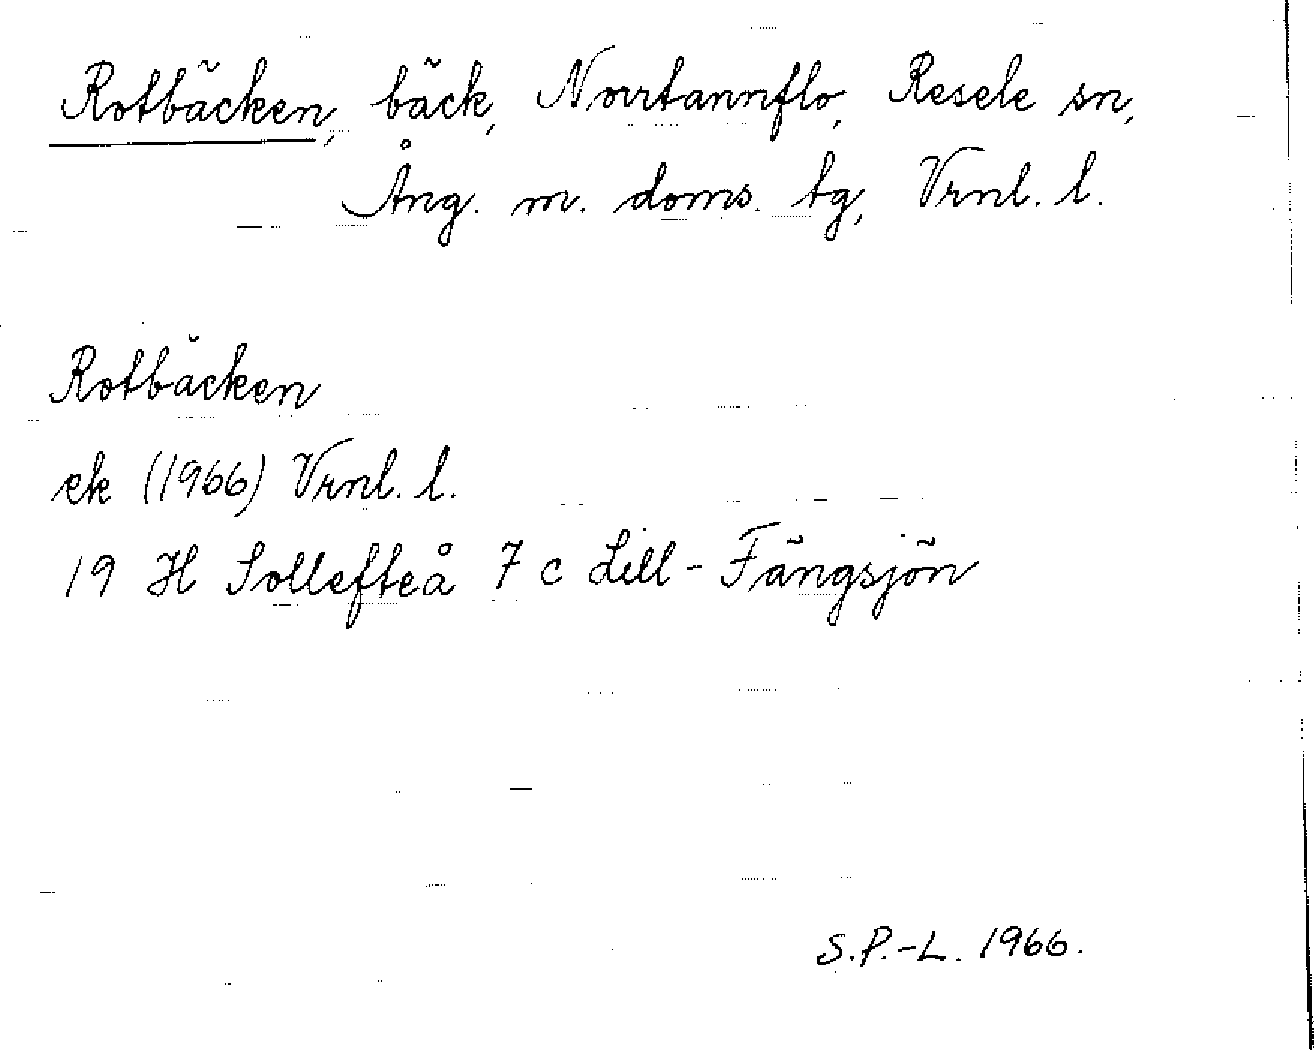 Rotbäcken, bäck, Norrtannflo, Resele sn,
Ång. m. doms. tg, Vrnl. l.
Rotbäcken
ek (1966) Vrnl. l.
19 H Sollefteå 7 c Lill-Fängsjön
S.P.-L. 1966.